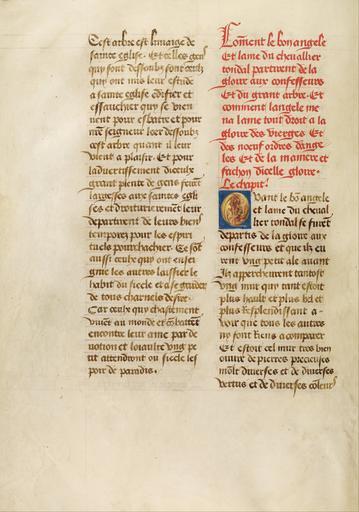 Cest arbre est limaige de
saincte eglise. Et celles gens
qui sont dessoubz sont ceulz
qui ont mis leur estude
a sainte eglise edifier et
essauchier qui se vien
nent pour esbatre et pour
nře seigneur loer dessoubz
cest arbre quant il leur
vient a plaisir. Et pour
laduertissement diceulx
grant plente de gens feirent
largesses aux saintes egli
ses et droitturierement leurs
departirent de leurs biens
temporelz pour les espiri
tuels pourchachier. Ce sont
aussi ceulx qui ont espar
gnie les autres laissier le
habit du siecle et a se garder
de tous charnels desirs.
Car ceulx qui chastement
viuent au monde et combatent
encontre leur ame par de
uotion et loiaulte ung pe
tit attendront ou siecle les
ioie de paradis.
Comment le bon angele
Et lame du cheuallier
tondal partirent de la
gloire aux confesseurs
Et du grant arbre. Et
comment langele me
na lame tout droit a la
gloire des vierges Et
des noeuf ordres dange
les Et de la maniere et
fachon dicelle gloire.
Le chapitre
Quant le bon angele
et lame du cheual
lier tondal se furent
departis de la gloire aux
confesseurs et que ilz eu
rent ung petit ale auant
Ilz apperchurent tantost
vng mur qui tant estoit
plus hault et plus bel et
plus Resplendissant a
voir que tous les autres
ny sont Riens a comparer
Et estoit cel mur tres bien
ouure de pierres precieuses
moult diuerses et de diuerses
vertus et de diuerses couleurs